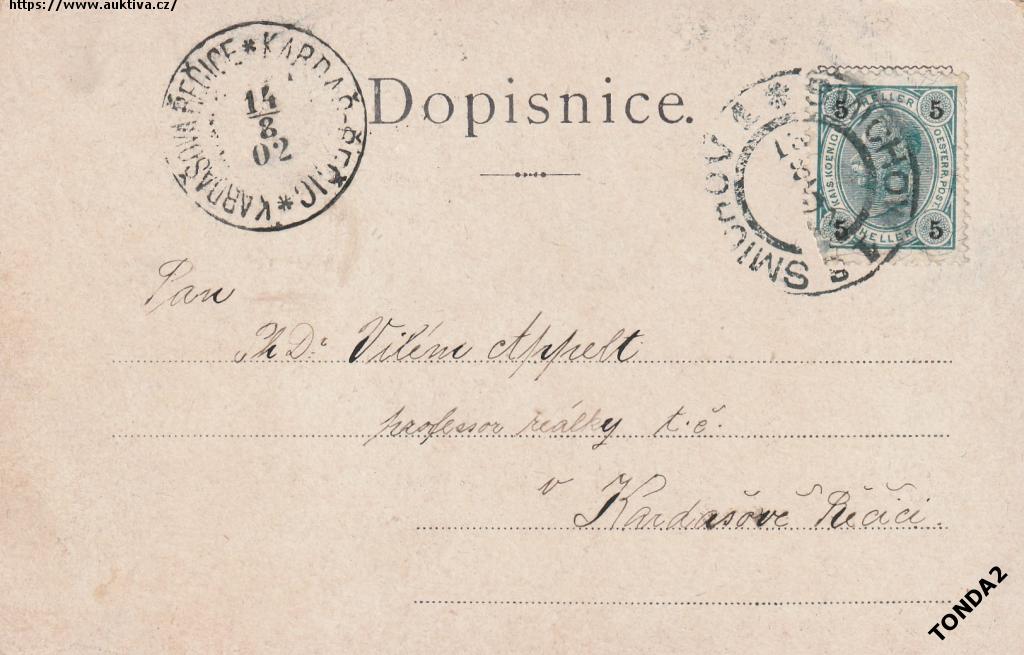 https://www.auktiva.cz/
KARDAŠOVA ŘEČICE * KARDAŠ-ŘEČIC *
14
8
02
Dopisnice.
SMICHOV 1 *
5 HELLER 5
KAIS. KOENIG. OESTERR. POST
5 HELLER 5
Pan
Ph Dr Vilém Appelt
professor reálky t.č.
v
Kardašově Řečici.
TONDA2